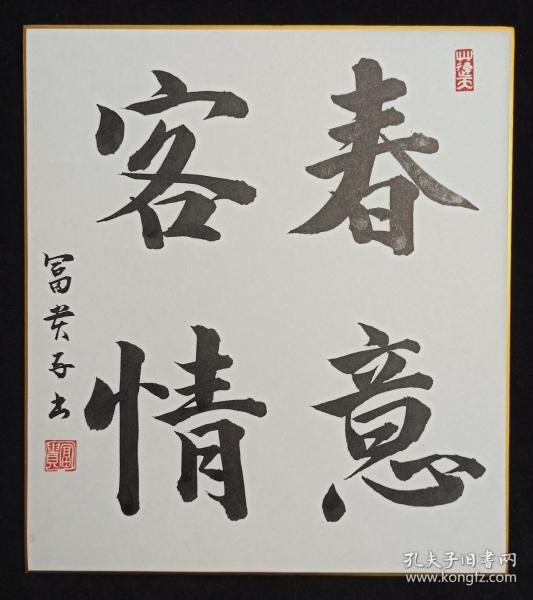 春意
客情
富貴子书
富貴
孔夫子旧书网
www.kongfz.com